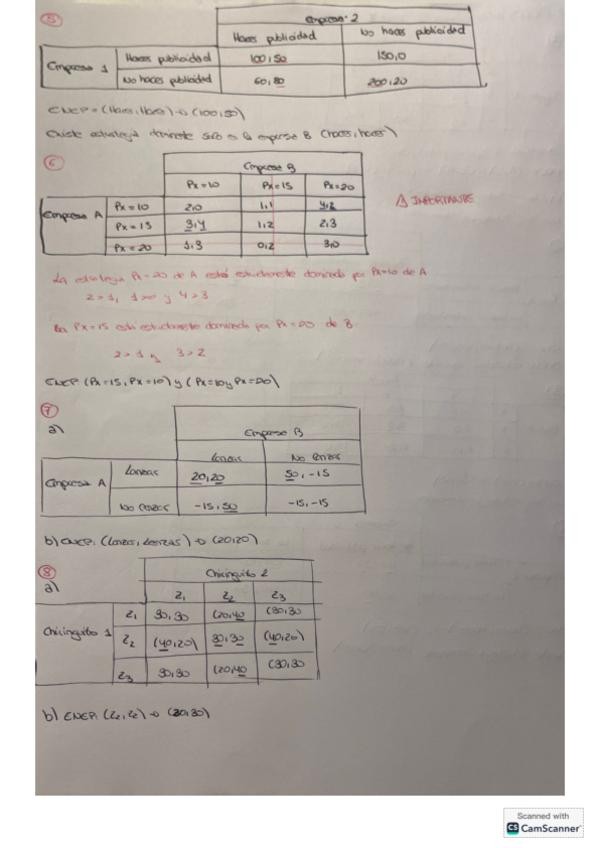 5
Empresa 2
Haces publicidad No haces publicidad
Empresa 1 Haces publicidad 100,50 150,0
No haces publicidad 60,80 200,20
ENEP = (Haces, Haces) → (100,50)
Existe estrategia dominante solo en la empresa B (haces, haces)
6
Empresa B
Px=10 Px=15 Px=20
Empresa A Px=10 2,0 1,1 4,2
Px=15 3,4 1,2 2,3
Px=20 1,3 0,2 3,0
⚠ IMPORTANTE
La estrategia Px=20 de A está estrictamente dominada por Px=10 de A
2>1, 1>0 y 4>3
Px=15 está estrictamente dominada por Px=20 de B
2>1 y 3>2
ENEP (Px=15, Px=10) y (Px=10 y Px=20)
7
a)
Empresa B
Lanzas No lanzas
Empresa A Lanzas 20,20 50,-15
No lanzas -15,50 -15,-15
b) ENEP: (Lanzas, Lanzas) → (20,20)
8
a)
Chiringuito 2
Z1 Z2 Z3
Chiringuito 1 Z1 30,30 (20,40 (30,30
Z2 (40,20) 30,30 (40,20)
Z3 30,30 (20,40 (30,30
b) ENEP: (Z2,Z2) → (30,30)
Scanned with
CS CamScanner